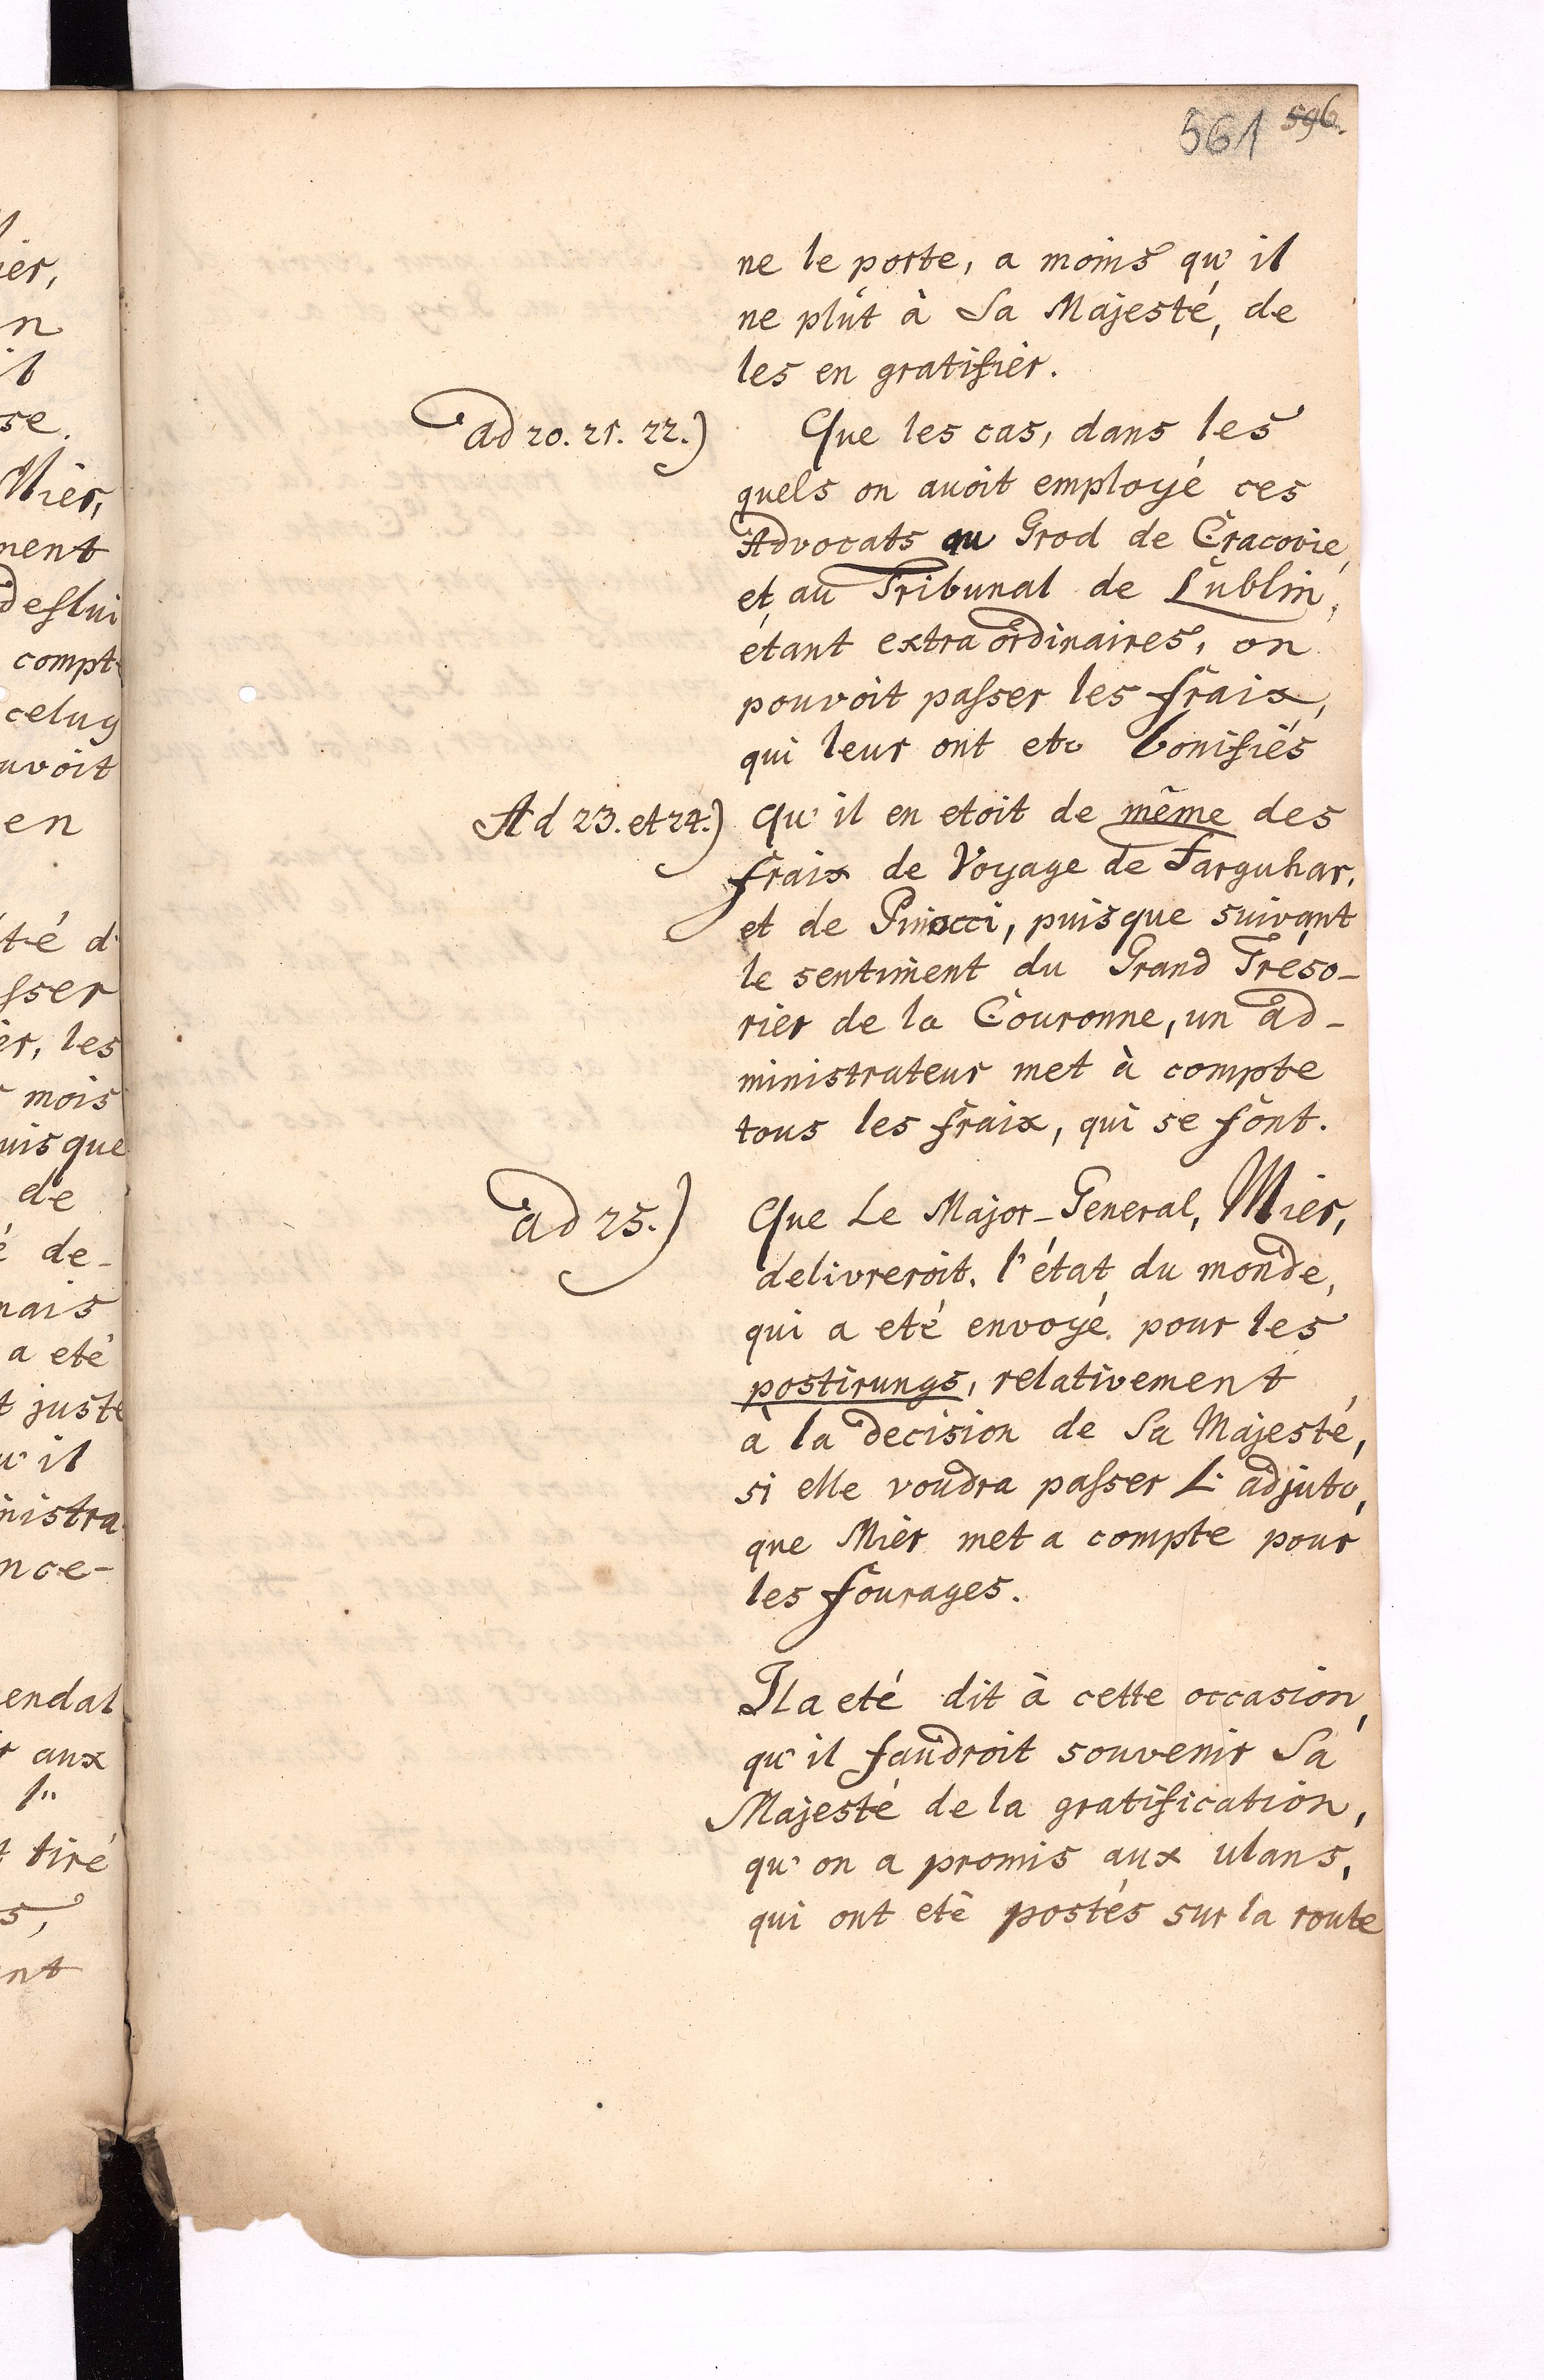 561 596.
ne le porte, a moins qu'il
ne plût à Sa Majesté, de
les en gratifier.
ad 20. 21. 22.) Que les cas, dans les
quels on avoit employé ces
Advocats au Grod de Cracovie,
et au Tribunal de Lublin,
étant extraordinaires, on
pouvoit passer les fraix,
qui leur ont eté bonifiés
Ad 23. et 24.) qu'il en etoit de même des
fraix de Voyage de Farguhar.
et de Pinocci, puisque suivant
le sentiment du Grand Tréso-
rier de la Couronne, un ad-
ministrateur met à compte
tous les fraix, qui se font.
ad 25.) Que Le Major-General, Mier,
delivreroit. l'état du monde,
qui a eté envoyé pour les
postirungs, relativement
à la decision de Sa Majesté,
si elle voudra passer L'adjuto,
que Mier met a compte pour
les fourages.
Il a eté dit à cette occasion,
qu'il faudroit souvenir Sa
Majesté de la gratification,
qu'on a promis aux ulans,
qui ont eté postés sur la route
ier,
n
il
se.
Mier,
ment
compt
celuy
avoit
en
té d'
sser
er, les
mois
uisque
de
é de-
mais
a eté
t juste
u'il
nistra
nce-
endat
r aux
t tiré
s,
ent